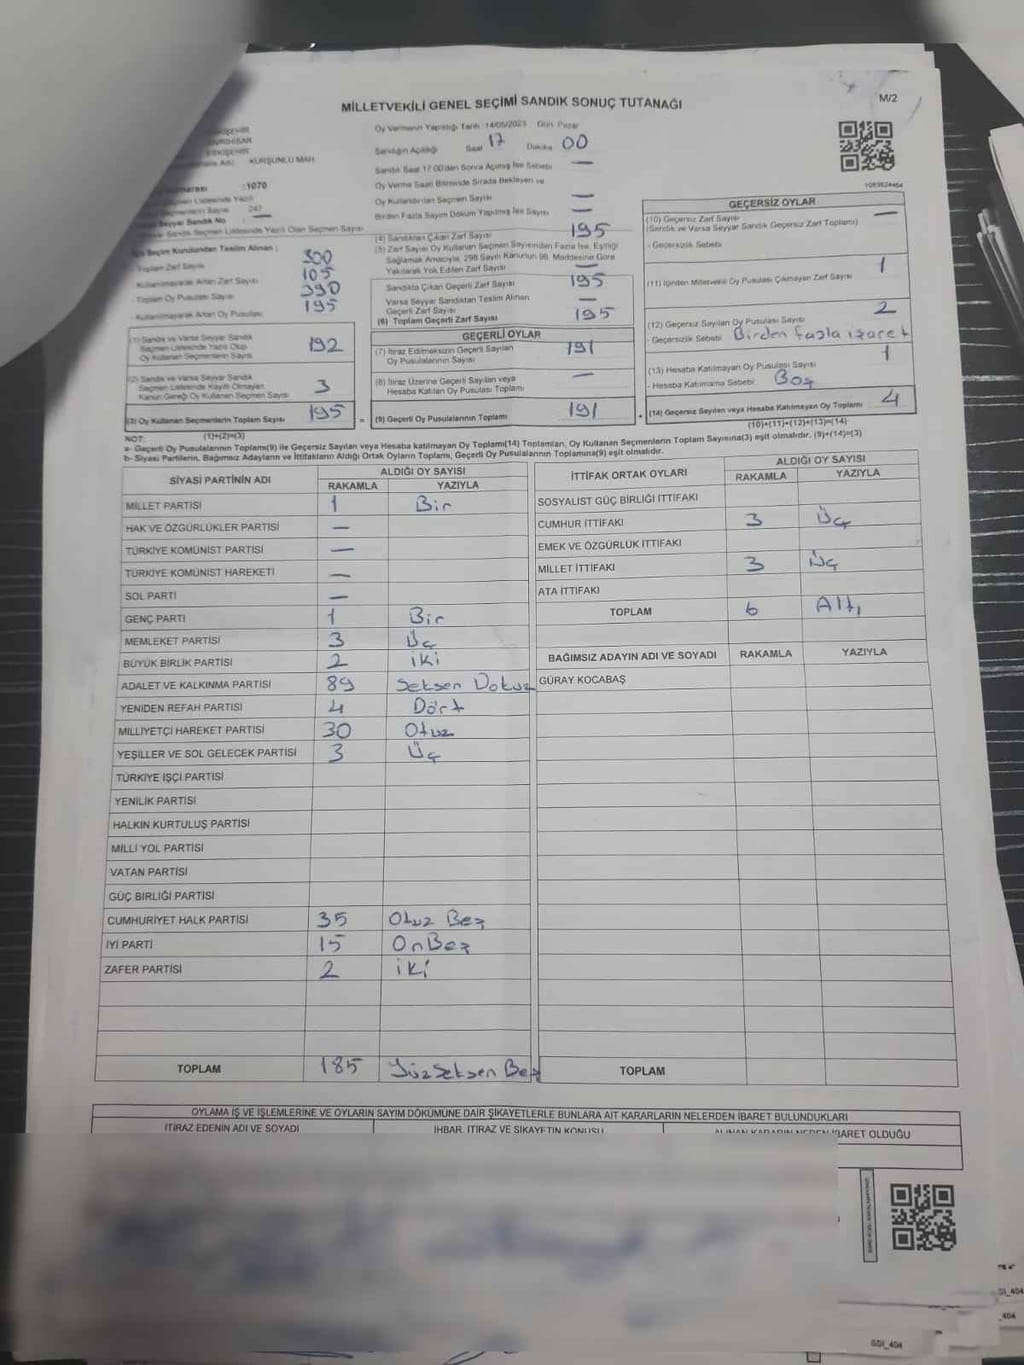 MİLLETVEKİLİ GENEL SEÇİMİ SANDIK SONUÇ TUTANAĞI
M/2
Oy Vermenin Yapıldığı Tarih :14/05/2023 Gün: Pazar
Sandığın Açıldığı Saat 17 Dakika 00
KURŞUNLU MAH
Sandık Saat 17:00'den Sonra Açılmış İse Sebebi —
Oy Verme Saati Bitiminde Sırada Bekleyen ve
Oy Kullandırılan Seçmen Sayısı —
Birden Fazla Sayım Döküm Yapılmış İse Sayısı —
:1070
247
Seyyar Sandık No —
1089824464
(4) Sandıktan Çıkan Zarf Sayısı 195
(5) Zarf Sayısı Oy Kullanan Seçmen Sayısından Fazla İse, Eşitliği
Sağlamak Amacıyla, 298 Sayılı Kanunun 98. Maddesine Göre
Yakılarak Yok Edilen Zarf Sayısı —
Seçim Kurulundan Teslim Alınan ;
- Toplam Zarf Sayısı 300
- Kullanılmayarak Artan Zarf Sayısı 105
- Toplam Oy Pusulası Sayısı 390
- Kullanılmayarak Artan Oy Pusulası 195
Sandıkta Çıkan Geçerli Zarf Sayısı 195
Varsa Seyyar Sandıktan Teslim Alınan
Geçerli Zarf Sayısı —
(6) Toplam Geçerli Zarf Sayısı 195
(1) Sandık ve Varsa Seyyar Sandık
Seçmen Listesinde Yazılı Olup
Oy Kullanan Seçmenlerin Sayısı 192
(2) Sandık ve Varsa Seyyar Sandık
Seçmen Listesinde Kayıtlı Olmayan
Kanun Gereği Oy Kullanan Seçmen Sayısı 3
(3) Oy Kullanan Seçmenlerin Toplam Sayısı 195
(1)+(2)=(3)
=
GEÇERLİ OYLAR
(7) İtiraz Edilmeksizin Geçerli Sayılan
Oy Pusulalarının Sayısı 191
(8) İtiraz Üzerine Geçerli Sayılan veya
Hesaba Katılan Oy Pusulası Toplamı —
(9) Geçerli Oy Pusulalarının Toplamı 191
+
GEÇERSİZ OYLAR
(10) Geçersiz Zarf Sayısı —
(Sandık ve Varsa Seyyar Sandık Geçersiz Zarf Toplamı)
- Geçersizlik Sebebi
(11) İçinden Milletvekili Oy Pusulası Çıkmayan Zarf Sayısı 1
(12) Geçersiz Sayılan Oy Pusulası Sayısı 2
- Geçersizlik Sebebi Birden fazla işaret
(13) Hesaba Katılmayan Oy Pusulası Sayısı 1
- Hesaba Katılmama Sebebi Boş
(14) Geçersiz Sayılan veya Hesaba Katılmayan Oy Toplamı 4
(10)+(11)+(12)+(13)=(14)
NOT:
a- Geçerli Oy Pusulalarının Toplamı(9) ile Geçersiz Sayılan veya Hesaba katılmayan Oy Toplamı(14) Toplamları, Oy Kullanan Seçmenlerin Toplam Sayısına(3) eşit olmalıdır. (9)+(14)=(3)
b- Siyasi Partilerin, Bağımsız Adayların ve İttifakların Aldığı Ortak Oyların Toplamı, Geçerli Oy Pusulalarının Toplamına(9) eşit olmalıdır.
SİYASİ PARTİNİN ADI ALDIĞI OY SAYISI
RAKAMLA YAZIYLA
MİLLET PARTİSİ 1 Bir
HAK VE ÖZGÜRLÜKLER PARTİSİ —
TÜRKİYE KOMÜNİST PARTİSİ —
TÜRKİYE KOMÜNİST HAREKETİ —
SOL PARTİ —
GENÇ PARTİ 1 Bir
MEMLEKET PARTİSİ 3 Üç
BÜYÜK BİRLİK PARTİSİ 2 iki
ADALET VE KALKINMA PARTİSİ 89 Seksen Dokuz
YENİDEN REFAH PARTİSİ 4 Dört
MİLLİYETÇİ HAREKET PARTİSİ 30 Otuz
YEŞİLLER VE SOL GELECEK PARTİSİ 3 Üç
TÜRKİYE İŞÇİ PARTİSİ
YENİLİK PARTİSİ
HALKIN KURTULUŞ PARTİSİ
MİLLİ YOL PARTİSİ
VATAN PARTİSİ
GÜÇ BİRLİĞİ PARTİSİ
CUMHURİYET HALK PARTİSİ 35 Otuz Beş
İYİ PARTİ 15 OnBeş
ZAFER PARTİSİ 2 iki
TOPLAM 185 YüzSeksen Beş
İTTİFAK ORTAK OYLARI ALDIĞI OY SAYISI
RAKAMLA YAZIYLA
SOSYALİST GÜÇ BİRLİĞİ İTTİFAKI
CUMHUR İTTİFAKI 3 Üç
EMEK VE ÖZGÜRLÜK İTTİFAKI
MİLLET İTTİFAKI 3 Üç
ATA İTTİFAKI
TOPLAM 6 Altı
BAĞIMSIZ ADAYIN ADI VE SOYADI RAKAMLA YAZIYLA
GÜRAY KOCABAŞ
TOPLAM
OYLAMA İŞ VE İŞLEMLERİNE VE OYLARIN SAYIM DÖKÜMÜNE DAİR ŞİKAYETLERLE BUNLARA AİT KARARLARIN NELERDEN İBARET BULUNDUKLARI
İTİRAZ EDENİN ADI VE SOYADI İHBAR, İTİRAZ VE ŞİKAYETİN KONUSU ALINAN KARARIN NEDEN İBARET OLDUĞU
GSI_404